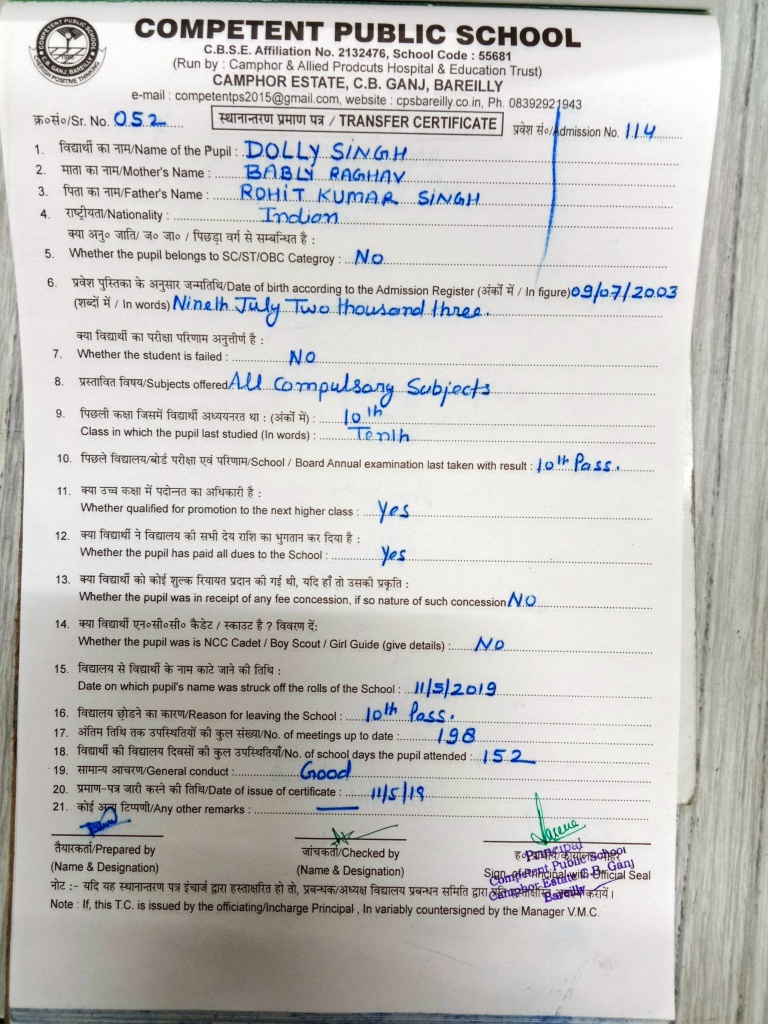 COMPETENT PUBLIC SCHOOL
C.B.S.E. Affiliation No. 2132476, School Code : 55681
(Run by : Camphor & Allied Prodcuts Hospital & Education Trust)
CAMPHOR ESTATE, C.B. GANJ, BAREILLY
e-mail : competentps2015@gmail.com, website : cpsbareilly.co.in, Ph. 08392921943
COMPETENT PUBLIC SCHOOL
C.B. GANJ, BAREILLY
POSITIVE THINKING
क्र०सं०/Sr. No. 052
स्थानान्तरण प्रमाण पत्र / TRANSFER CERTIFICATE
प्रवेश सं०/Admission No. 114
1. विद्यार्थी का नाम/Name of the Pupil : DOLLY SINGH
2. माता का नाम/Mother's Name : BABLY RAGHAV
3. पिता का नाम/Father's Name : ROHIT KUMAR SINGH
4. राष्ट्रीयता/Nationality : Indian
क्या अनु० जाति/ ज० जा० / पिछड़ा वर्ग से सम्बन्धित है :
5. Whether the pupil belongs to SC/ST/OBC Categroy : No
6. प्रवेश पुस्तिका के अनुसार जन्मतिथि/Date of birth according to the Admission Register (अंकों में / In figure) 09/07/2003
(शब्दों में / In words) Nineth July Two thousand three.
क्या विद्यार्थी का परीक्षा परिणाम अनुत्तीर्ण है :
7. Whether the student is failed : NO
8. प्रस्तावित विषय/Subjects offered All Compulsary Subjects
9. पिछली कक्षा जिसमें विद्यार्थी अध्ययनरत था : (अंकों में) : 10th
Class in which the pupil last studied (In words) : Tenth
10. पिछले विद्यालय/बोर्ड परीक्षा एवं परिणाम/School / Board Annual examination last taken with result : 10th Pass.
11. क्या उच्च कक्षा में पदोन्नत का अधिकारी है :
Whether qualified for promotion to the next higher class : Yes
12. क्या विद्यार्थी ने विद्यालय की सभी देय राशि का भुगतान कर दिया है :
Whether the pupil has paid all dues to the School : Yes
13. क्या विद्यार्थी को कोई शुल्क रियायत प्रदान की गई थी, यदि हाँ तो उसकी प्रकृति :
Whether the pupil was in receipt of any fee concession, if so nature of such concession NO
14. क्या विद्यार्थी एन०सी०सी० कैडेट / स्काउट है ? विवरण दें:
Whether the pupil was is NCC Cadet / Boy Scout / Girl Guide (give details) : NO
15. विद्यालय से विद्यार्थी के नाम काटे जाने की तिथि :
Date on which pupil's name was struck off the rolls of the School : 11/5/2019
16. विद्यालय छोडने का कारण/Reason for leaving the School : 10th Pass.
17. अंतिम तिथि तक उपस्थितियों की कुल संख्या/No. of meetings up to date : 198
18. विद्यार्थी की विद्यालय दिवसों की कुल उपस्थितियाँ/No. of school days the pupil attended : 152
19. सामान्य आचरण/General conduct : Good
20. प्रमाण-पत्र जारी करने की तिथि/Date of issue of certificate : 11/5/19
21. कोई अन्य टिप्पणी/Any other remarks :
तैयारकर्ता/Prepared by
(Name & Designation)
जांचकर्ता/Checked by
(Name & Designation)
Sign. of Principal with Official Seal
Principal
Competent Public School
Camphor Estate C.B. Ganj
Bareilly
नोट :- यदि यह स्थानान्तरण पत्र इंचार्ज द्वारा हस्ताक्षरित हो तो, प्रबन्धक/अध्यक्ष विद्यालय प्रबन्धन समिति द्वारा करायें।
Note : If, this T.C. is issued by the officiating/Incharge Principal , In variably countersigned by the Manager V.M.C.